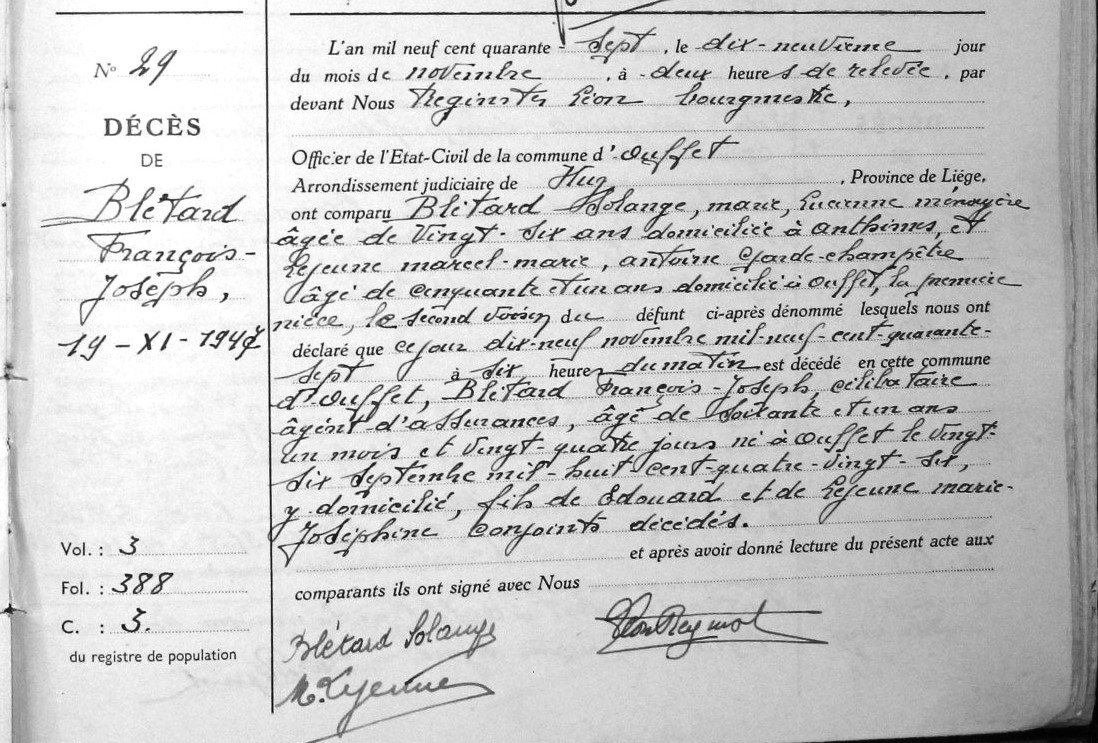 N° 29
DÉCÈS
DE
Blétard
François-
Joseph,
19-XI-1947
Vol. : 3
Fol. : 388
C. : 3.
du registre de population
L'an mil neuf cent quarante - Sept, le dix-neuvième jour
du mois de novembre, à deux heures de relevée, par
devant Nous Léon bourgmestre,
Officier de l'Etat-Civil de la commune d'Ouffet
Arrondissement judiciaire de Huy, Province de Liége,
ont comparu Blétard Solange, marie, Lucienne ménagère
âgée de Vingt-six ans domiciliée à anthisnes, et
Lejeune marcel-marie, antoine Garde-champêtre
âgé de cinquante et un ans domicilié à Ouffet, la première
nièce, le second voisin du défunt ci-après dénommé lesquels nous ont
déclaré que ce jour dix-neuf novembre mil-neuf-cent-quarante-
sept à six heures du matin est décédé en cette commune
d'Ouffet, Blétard François-Joseph, célibataire
agent-d'assurances, âgé de soixante et un ans
un mois et vingt-quatre jours né à Ouffet le vingt-
six septembre mil-huit-cent-quatre-vingt-six,
y domicilié, fils de Edouard et de Lejeune marie-
Joséphine conjoints décédés.
et après avoir donné lecture du présent acte aux
comparants ils ont signé avec Nous
Blétard Solange
M. Lejeune